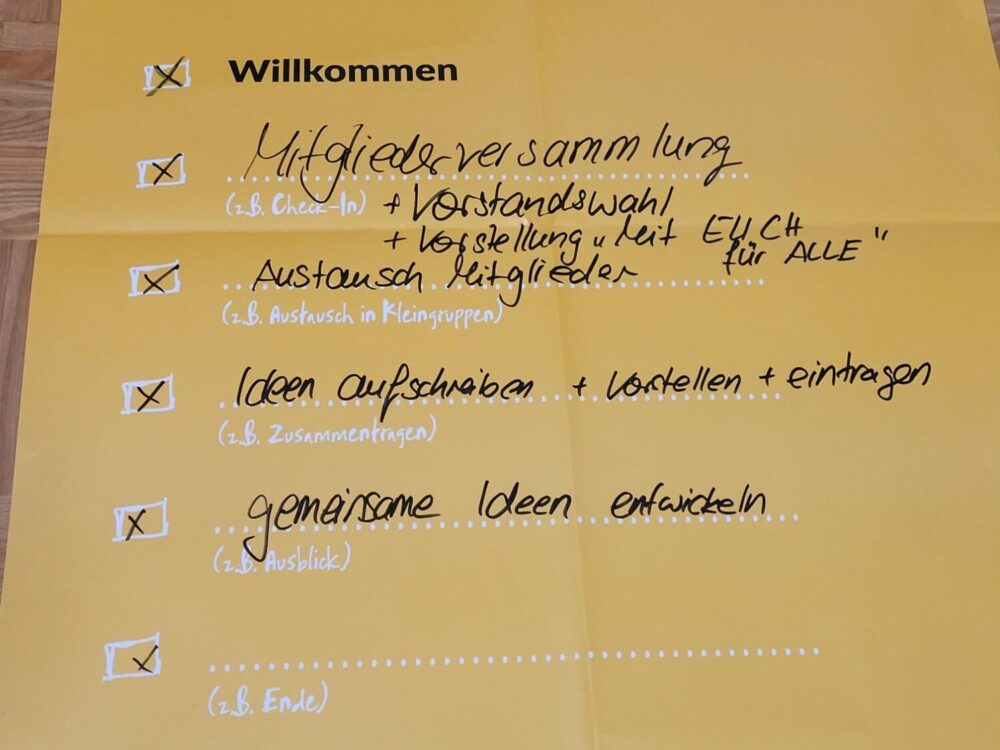 Willkommen
Mitgliederversammlung
(z.B. Check-In) + Vorstandswahl
+ Vorstellung „Mit EUCH
für ALLE"
Austausch Mitglieder
(z.B. Austausch in Kleingruppen)
Ideen aufschreiben + vorstellen + eintragen
(z.B. Zusammentragen)
gemeinsame Ideen entwickeln
(z.B. Ausblick)
(z.B. Ende)